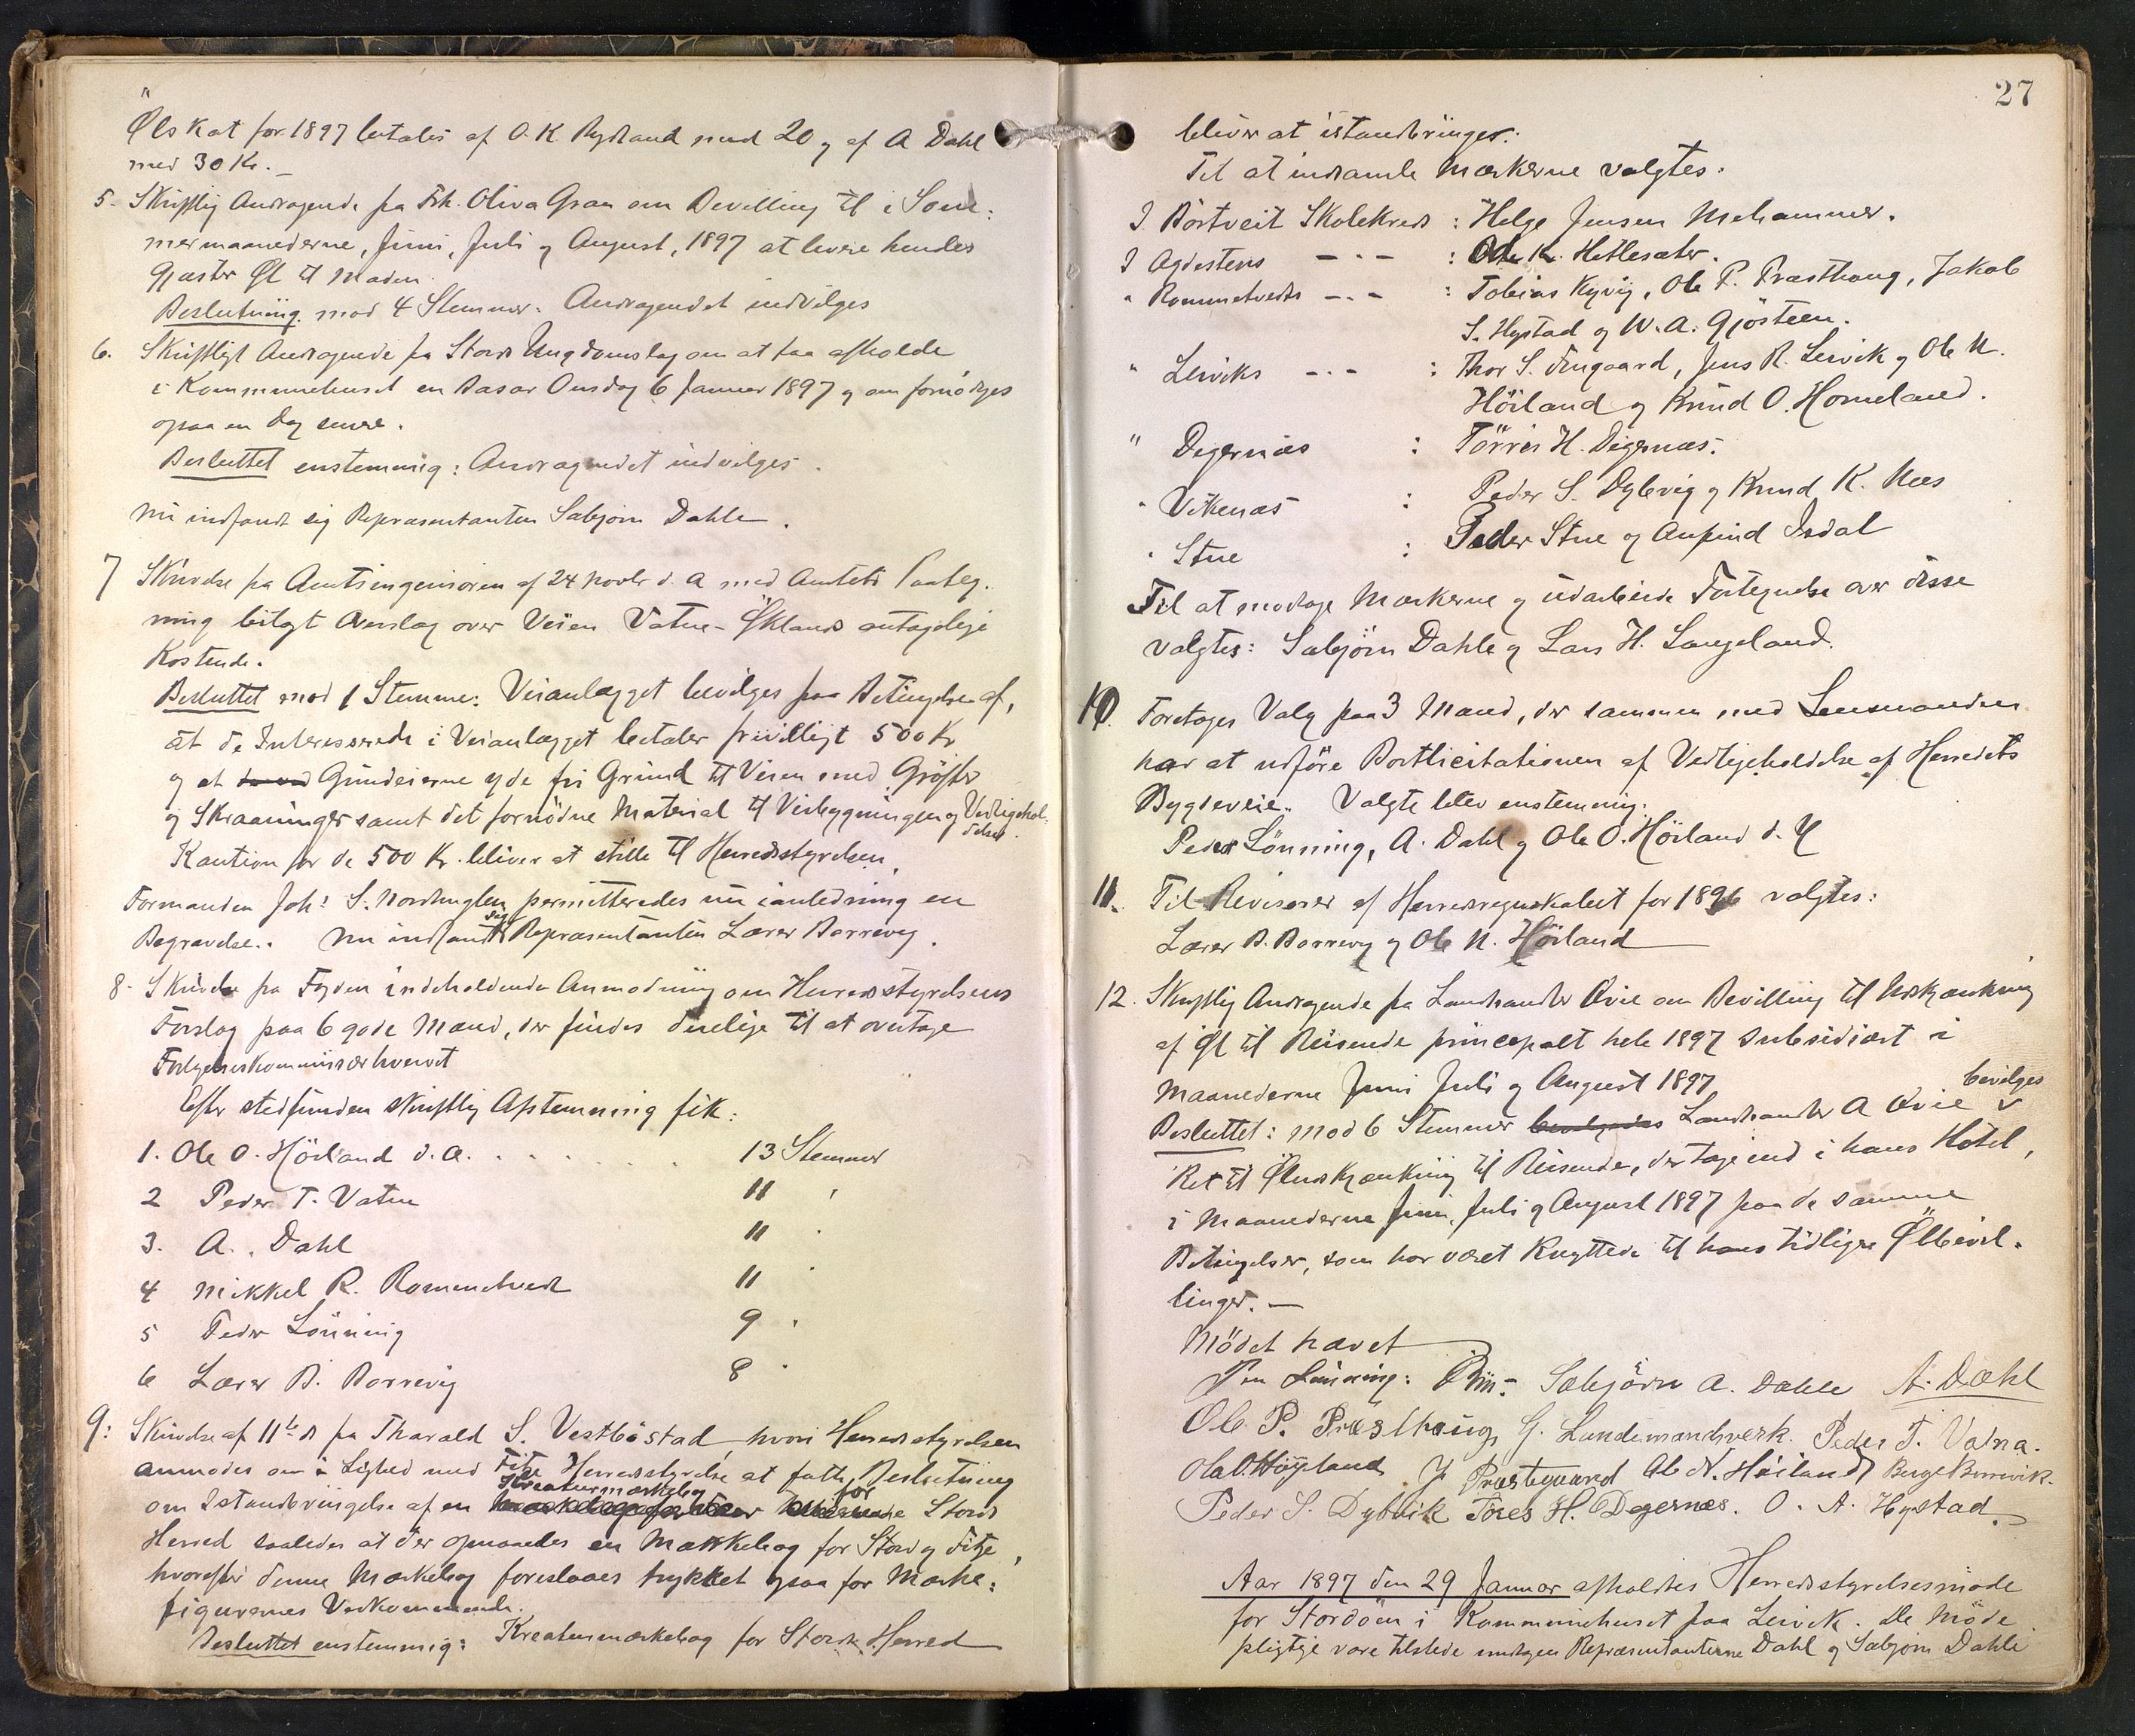 Ölskat for 1897 betales af O. K Rydland med 20 og af A Dahl
med 30 Kr. —
5. Skriftlig Andragende fra Frk. Oliva Graa om Bevilling til i Som-
mermaanederne, Juni, Juli og August, 1897 at levere hendes
Gjæster Øl til Maden
Beslutning. mod 4 Stemmer. Andragendet indvilges
6. Skriftligt Andragende fra Stords Ungdomslag om at faa afholde
i Kommunehuset en Basar Onsdag 6 Januar 1897 og om fornödiges
ogsaa en Dag senere.
Besluttet enstemmig: Andragendet indvilges.
Nu indfandt sig Repræsentanten Sæbjørn Dahle.
7 Skrivelse fra Amtsingeniøren af 24 Novbr d. A med Amtets Paateg-
ning bilagt Overslag over Veien Vatne-Øklands antagelige
Kostende.
Besluttet mod 1 Stemme: Veianlægget bevilges paa Betingelse af,
at de Interesserede i Veianlægget betaler frivilligt 500 Kr
og at Grundeierne yde fri Grund til Veien med Gröfter
og Skraaninger samt det fornödne Material til Veibygningen og Vedligehol-
delse.
Kaution for de 500 Kr. bliver at stille til Herredsstyrelsen.
Formanden Joh: S. Nordhuglen permitteredes nu i anledning en
Begravelse. Nu indfandt sig Repræsentanten Lærer Borrevig.
8. Skrivelse fra Fogden indeholdende Anmodning om Herredsstyrelsens
Forslag paa 6 gode Mænd, der findes duelige til at overtage
Forligelseskommissærhvervet
Efter stedfunden skriftlig Afstemning fik:
1. Ole O. Hörland d. Æ. . . . . . . 13 Stemmer
2 Peder T. Vatne 11 "
3. A. Dahl 11 "
4 Mikkel R. Rommetvedt 11 "
5 Peder Lönning 9 "
6 Lærer B. Borrevig 8 "
9: Skrivelse af 11te ds fra Tharald S. Vestböstad, hvori Herredsstyrelsen
anmodes om i Lighed med Fitje Herredsstyrelse at fatte Beslutning
om Istandbringelse af en Kreaturmærkebog for Stords
Herred saaledes at der opnaaedes en Mærkebog for Stord og Fitje,
hvorefter denne Mærkebog foreslaaes trykket ogsaa for Mærke-
figurernes Vedkommende.
Besluttet enstemmig: Kreaturmærkebog for Stords Herred
27
bliver at istandbringes.
Til at indsamle Mærkerne valgtes:
I Börtveit Skolekreds : Helge Jensen Mehammer.
I Agdestens —"— : Ole K. Hetlesæter.
" Rommetvedts —"— : Tobias Kyvig, Ole P. Præsthaug, Jakob
S. Hystad og W. A. Gjösteen.
" Lerviks —"— : Thor S. Tingaard, Jens R. Lervik og Ole N.
Hörland og Knud O. Horneland.
" Digernæs : Törris H. Digernæs.
" Vikenæs : Peder S. Dybvig og Knud K. Næs
" Stue : Peder Stue og Anfind Isdal
Til at modtage Mærkerne og udarbeide Fortegnelse over disse
valgtes: Sæbjörn Dahle og Lars H. Langeland.
10. Foretoges Valg paa 3 Mænd, der sammen med Lensmanden
har at udföre Bortlicitationen af Vedligeholdelse af Herredets
Bygdeveie. Valgte blev enstemmig:
Peder Lönning, A. Dahl og Ole O. Hörland d. Y
11. Til Revisorer af Herredsregnskabet for 1896 valgtes:
Lærer B. Borrevig og Ole N. Hörland
12. Skriftlig Andragende fra Landhandler Øvie om Bevilling til Udskjænkning
af Øl til Reisende principalt hele 1897 subsidiært i
Maanederne Juni Juli og August 1897
Besluttet: mod 6 Stemmer Landhandler A Øvie bevilges
Ret til Øludskjænkning til Reisende, der tage ind i hans Hotel,
i Maanederne Juni, Juli og August 1897 paa de samme
Betingelser, som har været knyttede til hans tidligere Ölbevil-
linger. —
Mödet hævet
Lönning: Sæbjörn A. Dahle A. Dahl
Ole P. Præsthaug, G. Landemandsverk. Peder T. Vatna.
Ola O. Høyland J Præstegaard Ole N. Høiland Børge Borrevik.
Peder S. Dybvik Töres H. Degernes. O. A. Hystad.
Aar 1897 den 29 Januar afholdtes Herredsstyrelsesmöde
for Stordöen i Kommunehuset paa Lervik. De Möde
pligtige vare tilstede undtagen Repræsentanterne Dahl og Sæbjørn Dahle